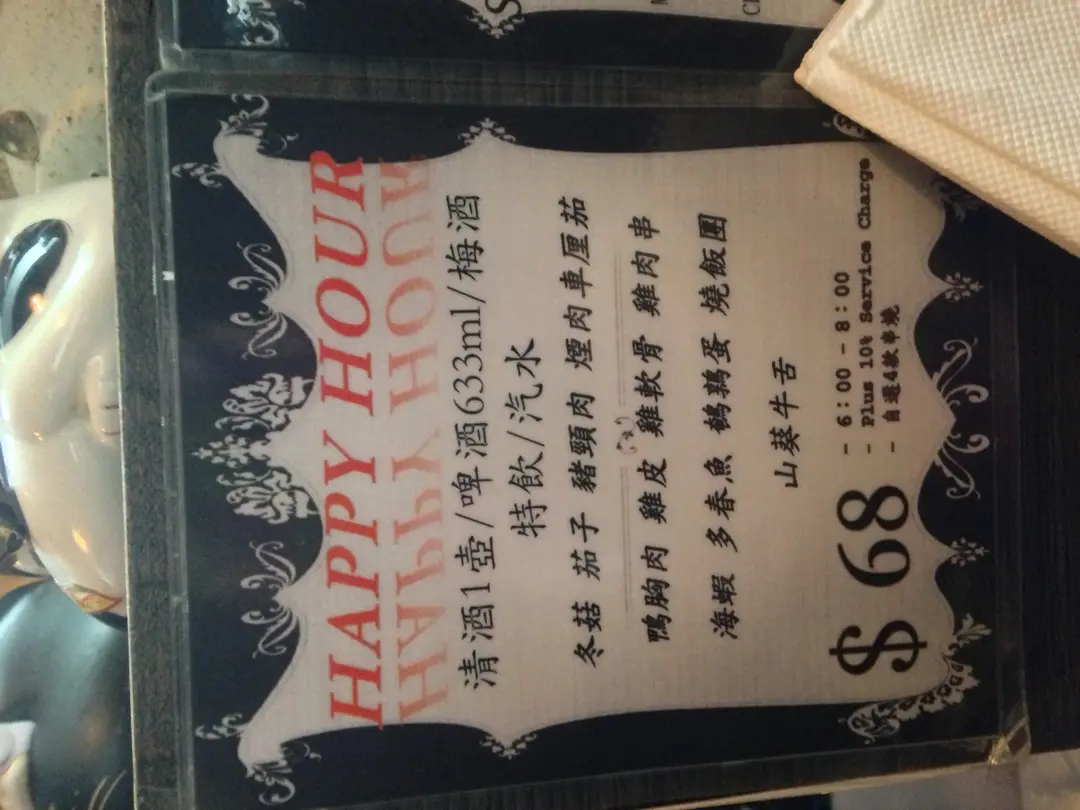 HAPPY HOUR
清酒1壺/啤酒633ml/梅酒
特飲/汽水
冬菇 茄子 豬頸肉 煙肉車厘茄
鴨胸肉 雞皮 雞軟骨 雞肉串
海蝦 多春魚 鵪鶉蛋 燒飯團
山葵牛舌
$ 68
- 6:00-8:00
- Plus 10% Service Charge
- 自選4款串燒